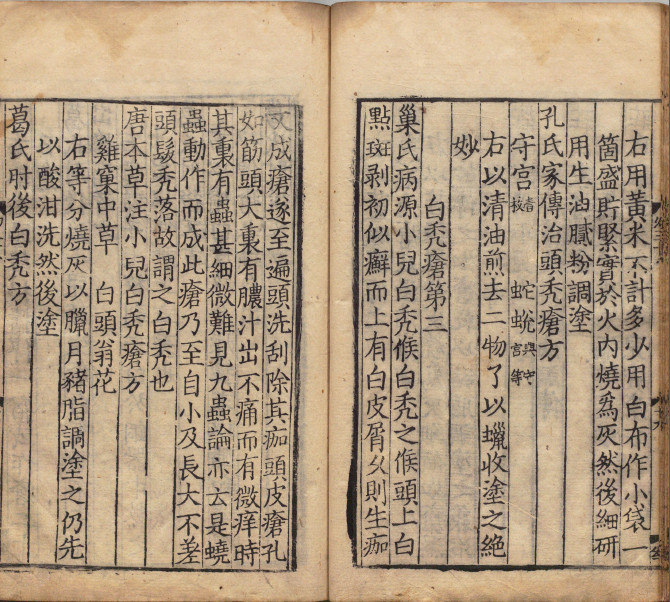 右用黃米不計多少用白布作小袋一
箇盛貯緊實於火內燒為灰然後細研
用生油膩粉調塗
孔氏家傳治頭禿瘡方
守宮 蛇蛻與守宮等
右以清油煎去二物了以蠟收塗之絕
妙
白禿瘡第三
巢氏病源小兒白禿候白禿之候頭上白
點斑剥初似癬而上有白皮屑久則生痂
㾗成瘡遂至遍頭洗刮除其痂頭皮瘡孔
如筋頭大裏有膿汁出不痛而有微痒時
其裏有蟲甚細微難見九蟲論亦云是蟯
蟲動作而成此瘡乃至自小及長大不差
頭髮禿落故謂之白禿也
唐本草注小兒白禿瘡方
雞窠中草 白頭翁花
右等分燒灰以臘月豬脂調塗之仍先
以酸泔洗然後塗
葛氏肘後白禿方